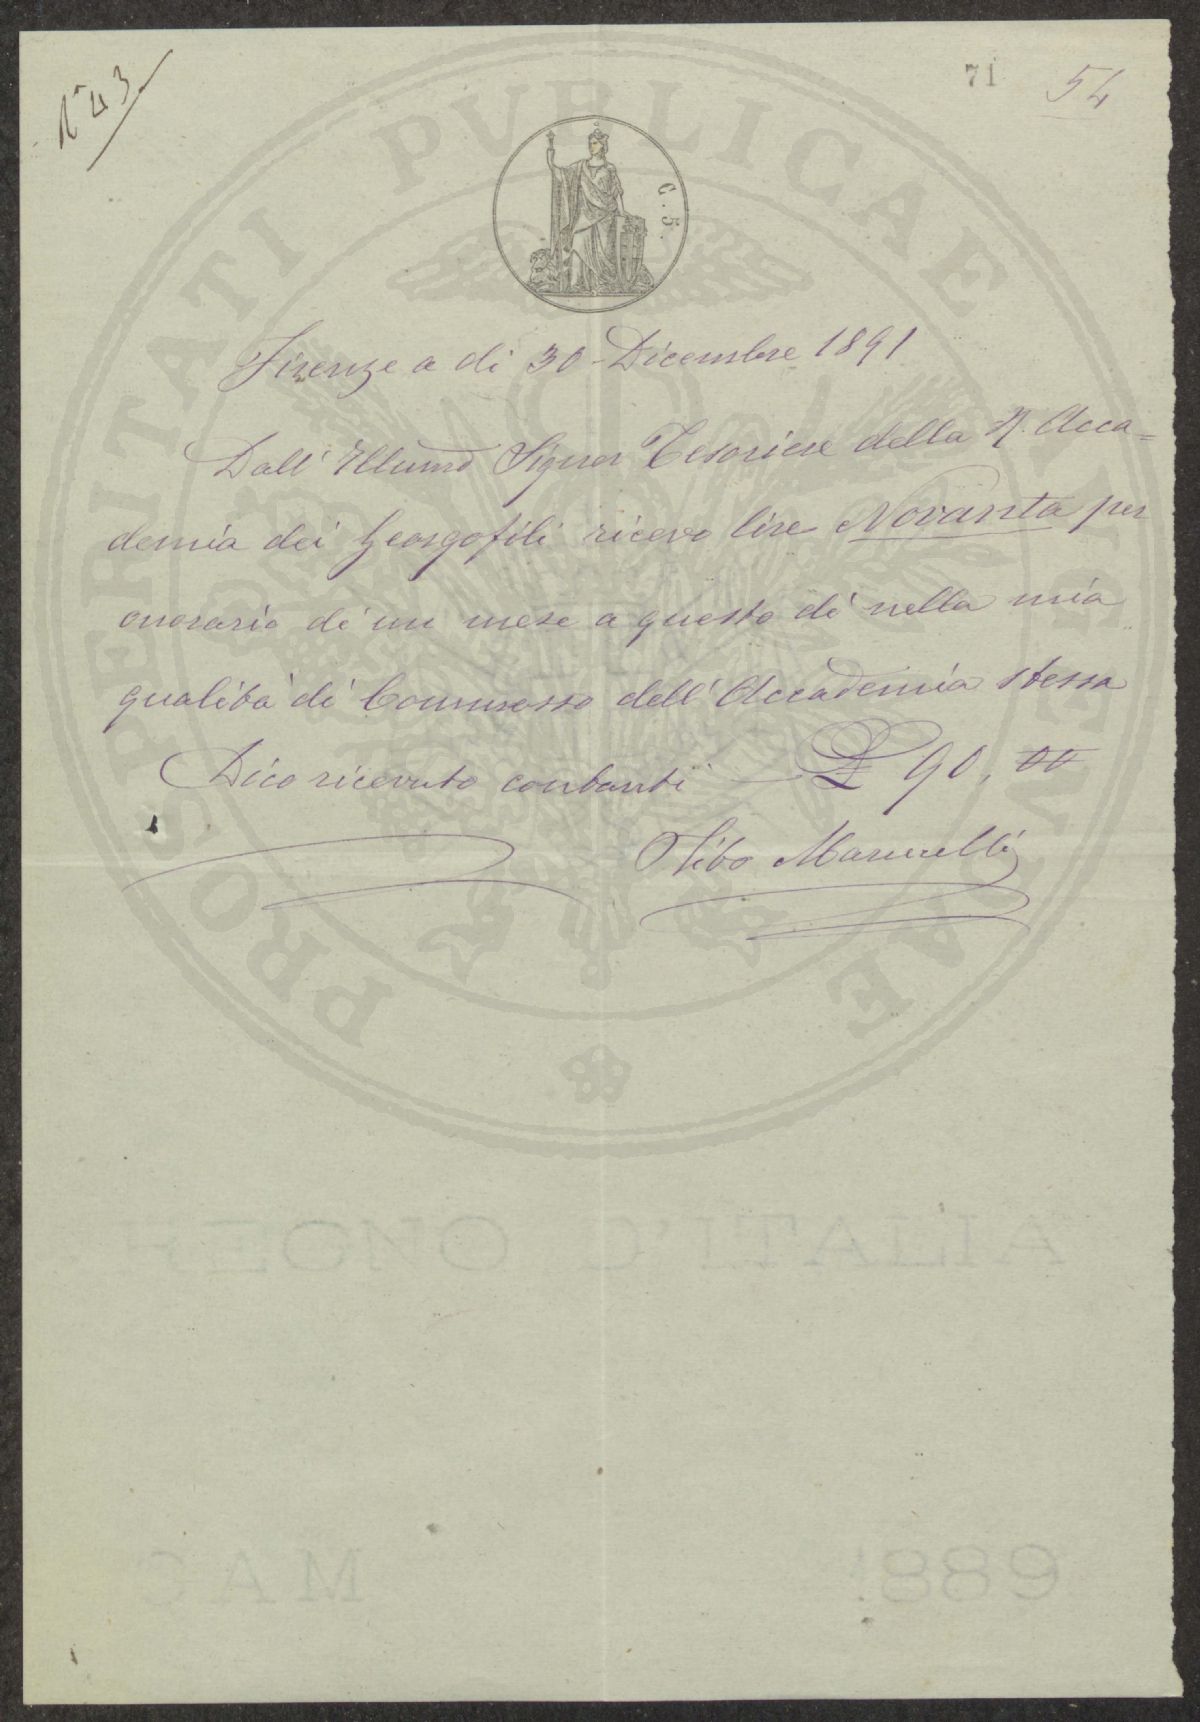 N° 43
71
54
C. 5.
PROSPERITATI PUBLICAE AUGENDAE
Firenze a di 30 Dicembre 1891
Dall' Illumo Signor Tesoriere della R. Acca=
demia dei Georgofili ricevo lire Novanta per
onorario di un mese a questo di nella mia
qualità di Commesso dell' Accademia stessa
Dico ricevuto contanti £ 90, 00
Olibo Marucelli
1889